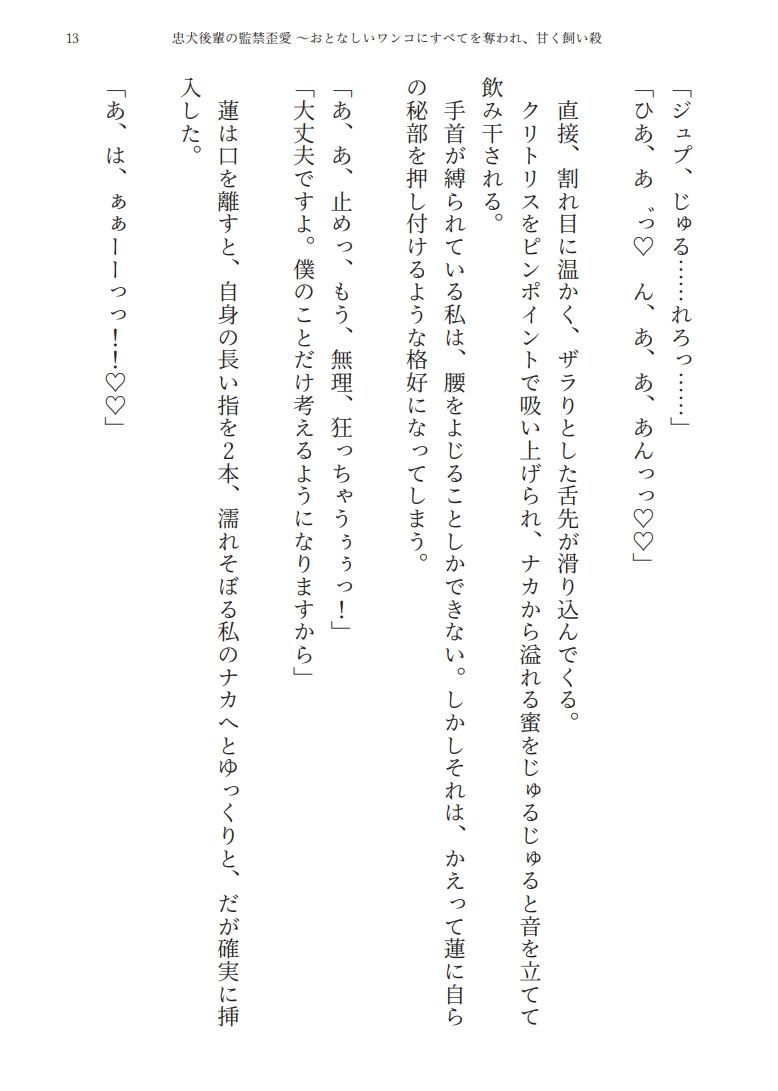 13
忠犬後輩の監禁歪愛 ～おとなしいワンコにすべてを奪われ、甘く飼い殺
「ジュプ、じゅる……れろっ……」
「ひあ、あ゛っ♡　ん、あ、あ、あんっっ♡♡」
直接、割れ目に温かく、ザラりとした舌先が滑り込んでくる。
クリトリスをピンポイントで吸い上げられ、ナカから溢れる蜜をじゅるじゅると音を立てて
飲み干される。
手首が縛られている私は、腰をよじることしかできない。しかしそれは、かえって蓮に自ら
の秘部を押し付けるような格好になってしまう。
「あ、あ、止めっ、もう、無理、狂っちゃうぅぅっ！」
「大丈夫ですよ。僕のことだけ考えるようになりますから」
蓮は口を離すと、自身の長い指を２本、濡れそぼる私のナカへとゆっくりと、だが確実に挿
入した。
「あ、は、ぁぁーーっっ！！♡♡」